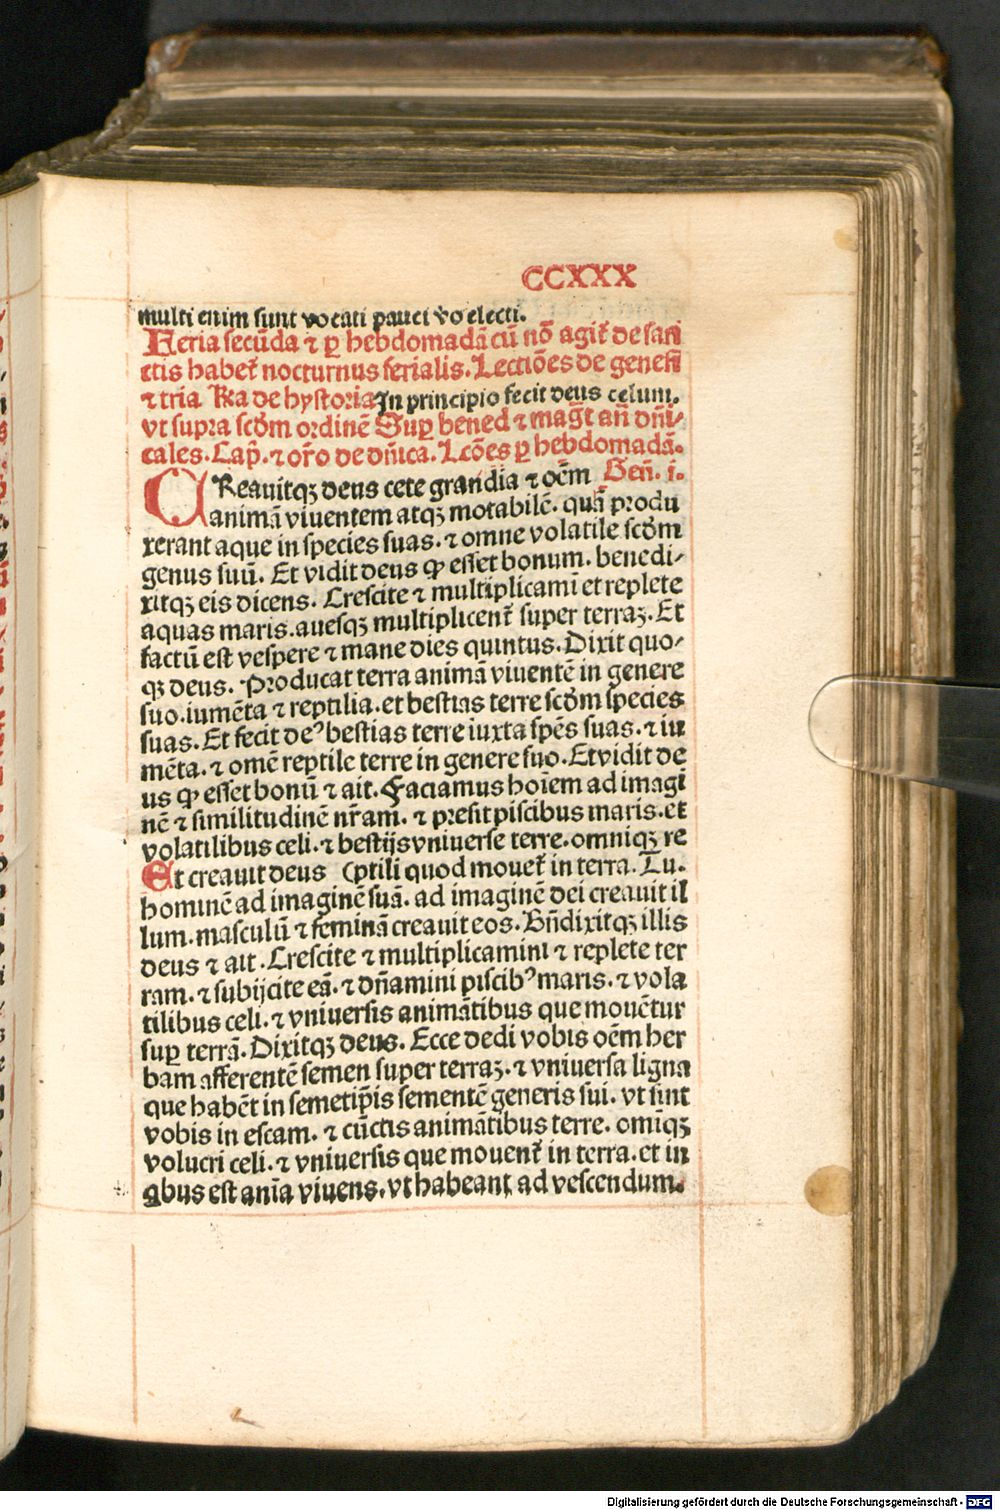 CCXXX
multi enim sunt vocati pauci v̄o electi.
Feria secūda ⁊ ꝑ hebdomadā cū nō agit̄ de san
ctis habet̄ nocturnus ferialis. Lectiōes de genesi
⁊ tria Rͣa de hystoria In principio fecit deus celum.
vt supra scd̄m ordinē Suꝑ bened ⁊ maḡt an̄ dn̄i-
cales. Cap̄. ⁊ or̄o de dn̄ica. Lc̄ōes ꝑ hebdomadā.
CReauitqꝫ deus cete grandia ⁊ oēm Gen̄. i.
animā viuentem atqꝫ motabilē. quā produ
xerant aque in species suas. ⁊ omne volatile scd̄m
genus suū. Et vidit deus ꝙ esset bonum. benedi-
xitqꝫ eis dicens. Crescite ⁊ multiplicamī et replete
aquas maris. auesqꝫ multiplicent̄ super terraꝫ. Et
factū est vespere ⁊ mane dies quintus. Dixit quo-
qꝫ deus. Producat terra animā viuentē in genere
suo. iumēta ⁊ reptilia. et bestias terre scd̄m species
suas. Et fecit deꝰ bestias terre iuxta sp̄es suas. ⁊ iu
mēta. ⁊ omē reptile terre in genere suo. Et vidit de
us ꝙ esset bonū ⁊ ait. Faciamus hoīem ad imagi
nē ⁊ similitudinē nr̄am. ⁊ presit piscibus maris. et
volatilibus celi. ⁊ bestijs vniuerse terre. omniqꝫ re
Et creauit deus (ptili quod mouet̄ in terra. Tu.
hominē ad imaginē suā. ad imaginē dei creauit il
lum. masculū ⁊ feminā creauit eos. Bn̄dixitqꝫ illis
deus ⁊ ait. Crescite ⁊ multiplicamini ⁊ replete ter
ram. ⁊ subijcite eā. ⁊ dn̄amini piscibꝰ maris. ⁊ vola
tilibus celi. ⁊ vniuersis animātibus que mouētur
suꝑ terrā. Dixitqꝫ deus. Ecce dedi vobis oēm her
bam afferentē semen super terraꝫ. ⁊ vniuersa ligna
que habēt in semetip̄is sementē generis sui. vt sint
vobis in escam. ⁊ cūctis animātibus terre. omīqꝫ
volucri celi. ⁊ vniuersis que mouent̄ in terra. et in
qbus est anīa viuens. vt habeant ad vescendum.
Digitalisierung gefördert durch die Deutsche Forschungsgemeinschaft - DFG